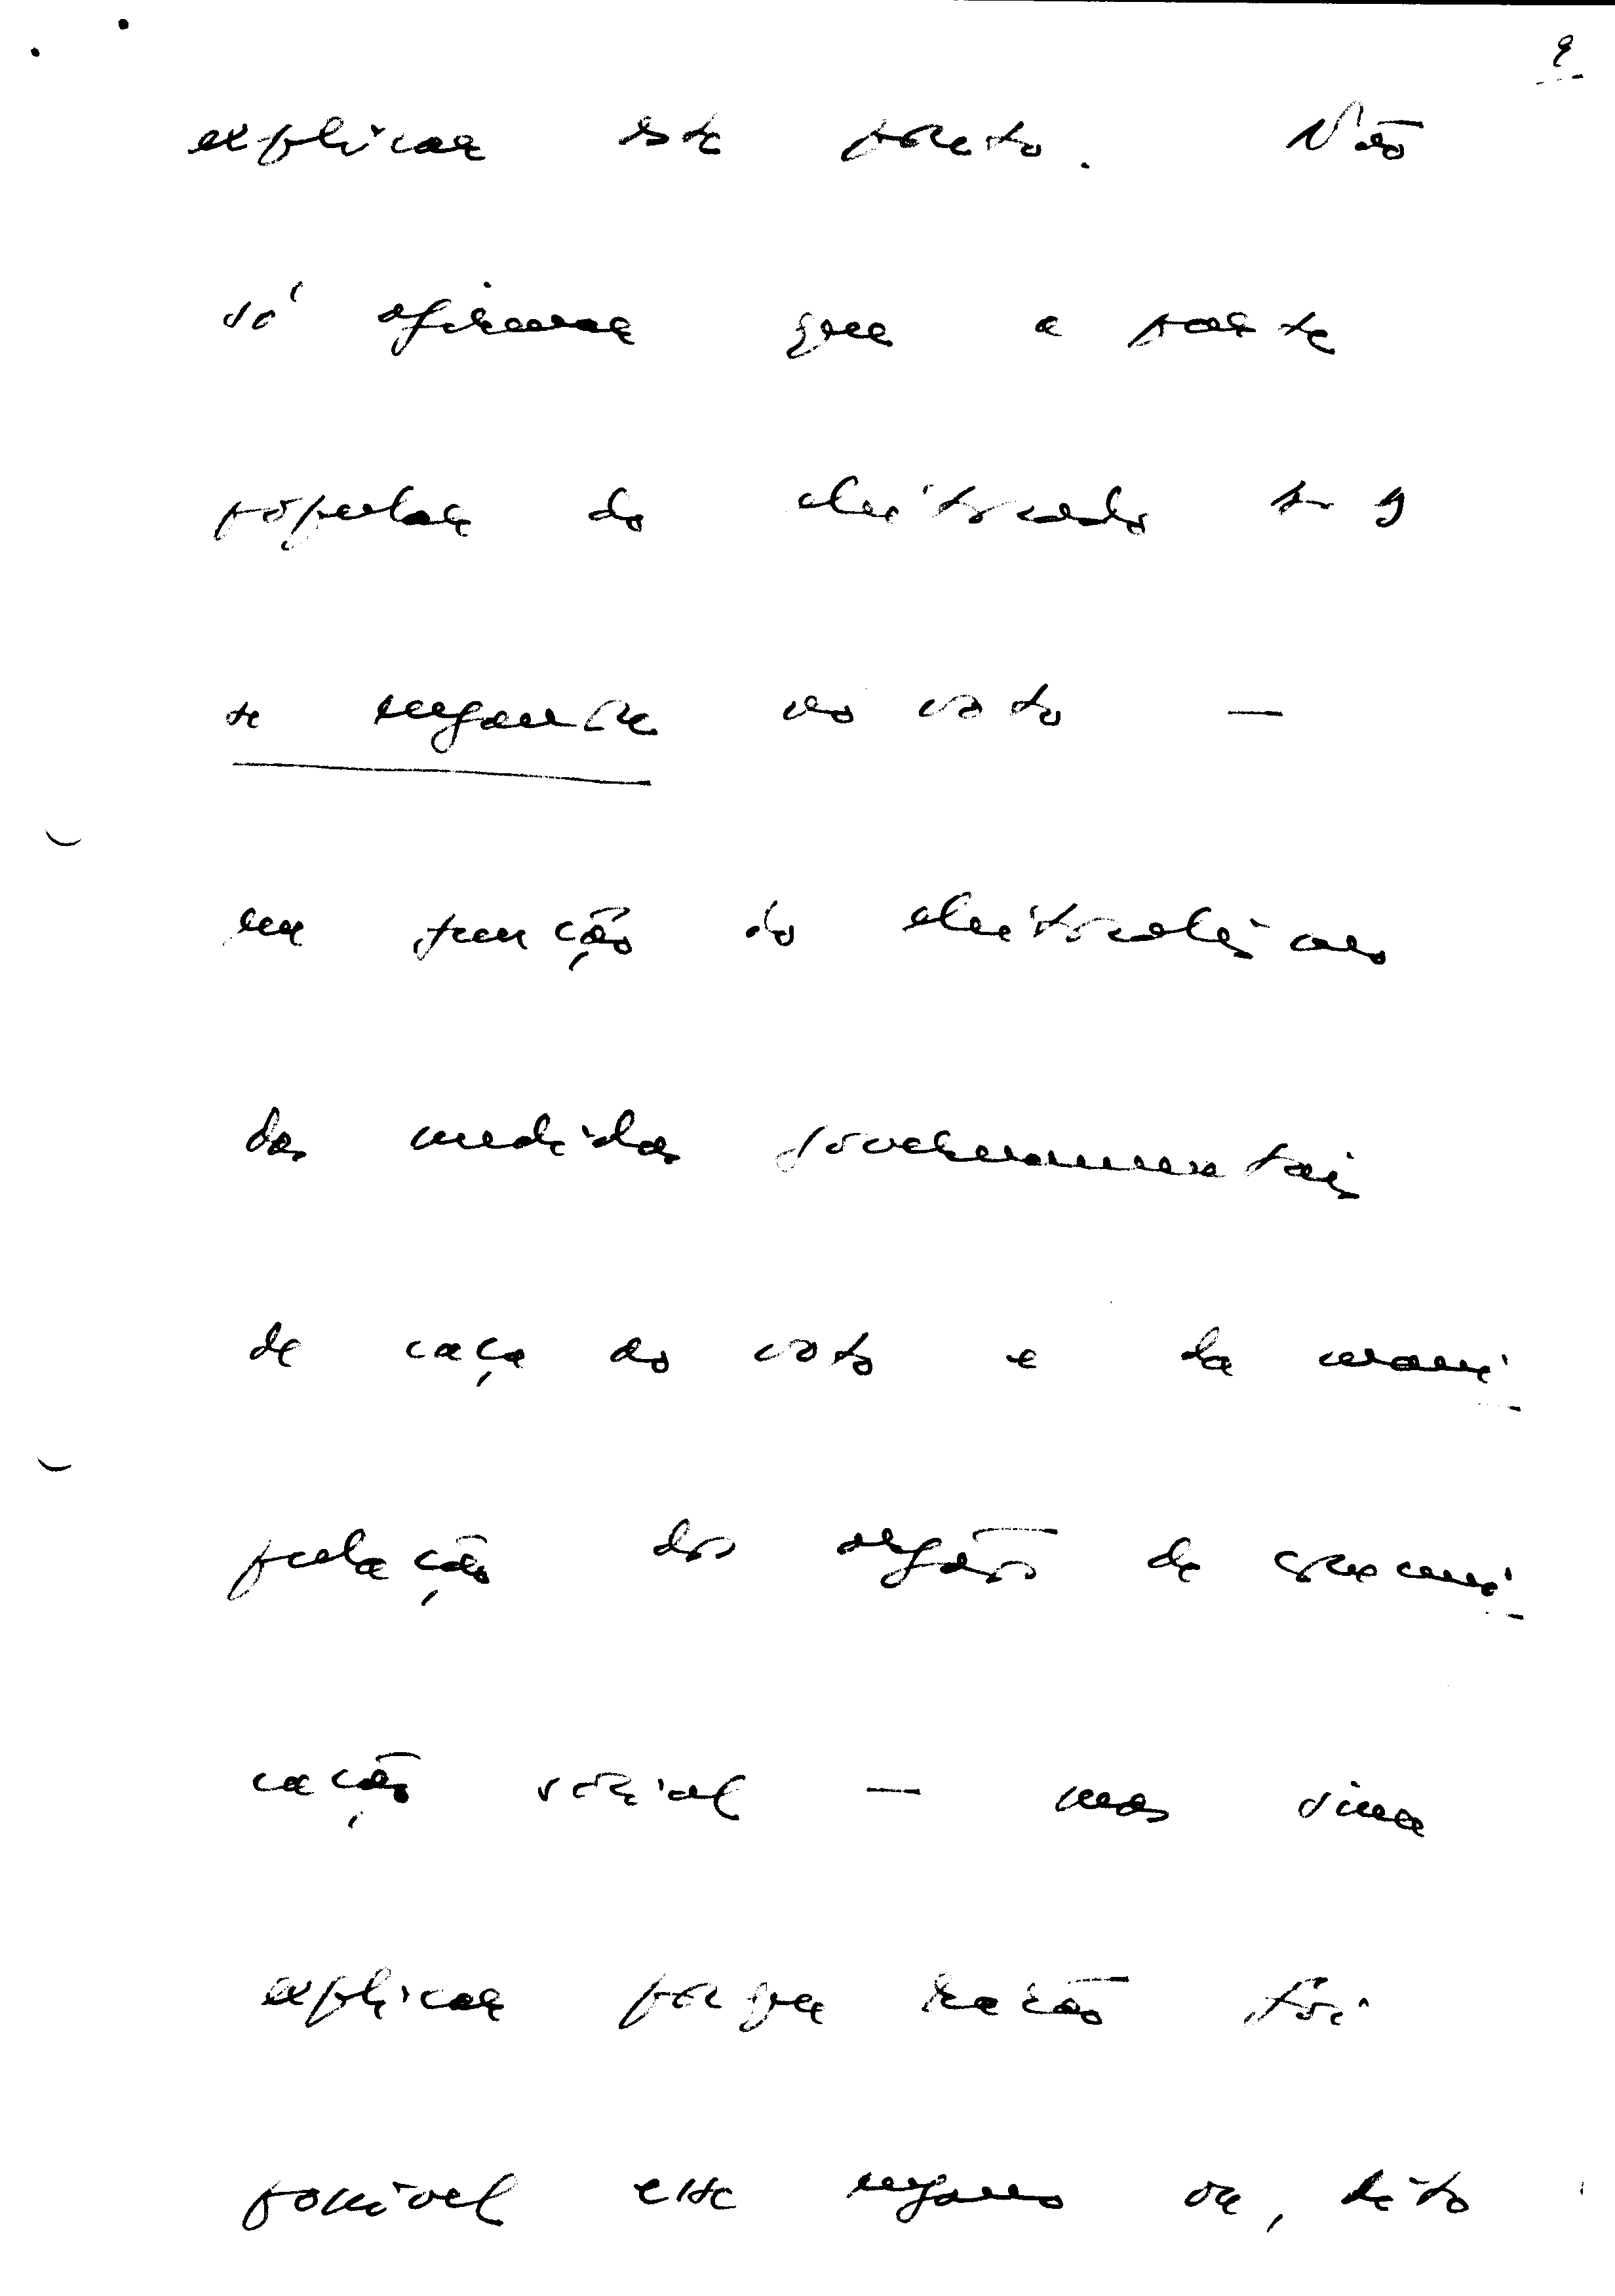 9
explicar este ponto. Não
só afirmar que a parte
popular do eleitorado
se engane no voto —
em função do eleitoralismo
das medidas governamentais
de caça ao voto e da mani
pulação dos orgãos de comuni
cação social — mas sim
explicar porque razão foi
possivel esse engano ou, dito